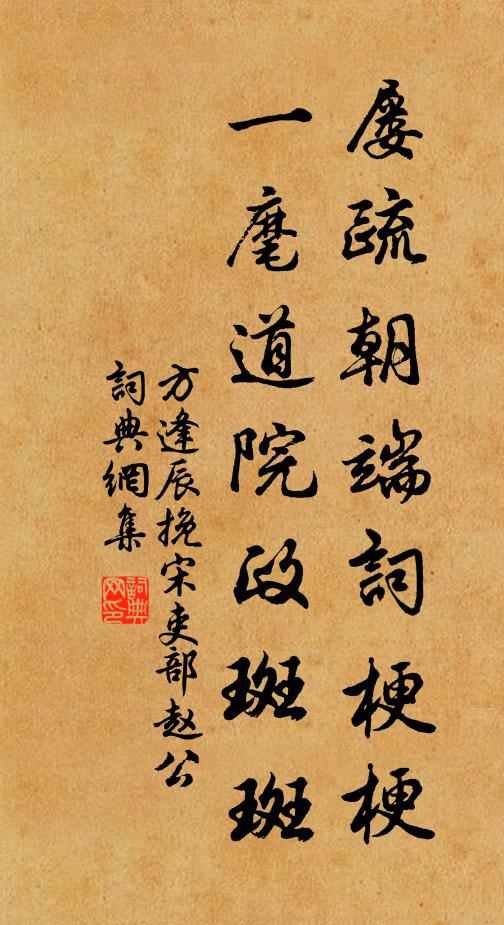 屢疏朝端詞梗梗
一麾道院政斑斑
方逢辰挽宋吏部赵公
詞典網集
詞典網印